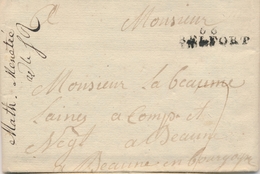 Monsieur
66
BELFORT
Monsieur la beaume
Laines a Comp. et
Negt a Beaune
a Beaune en bourgogne
Math.